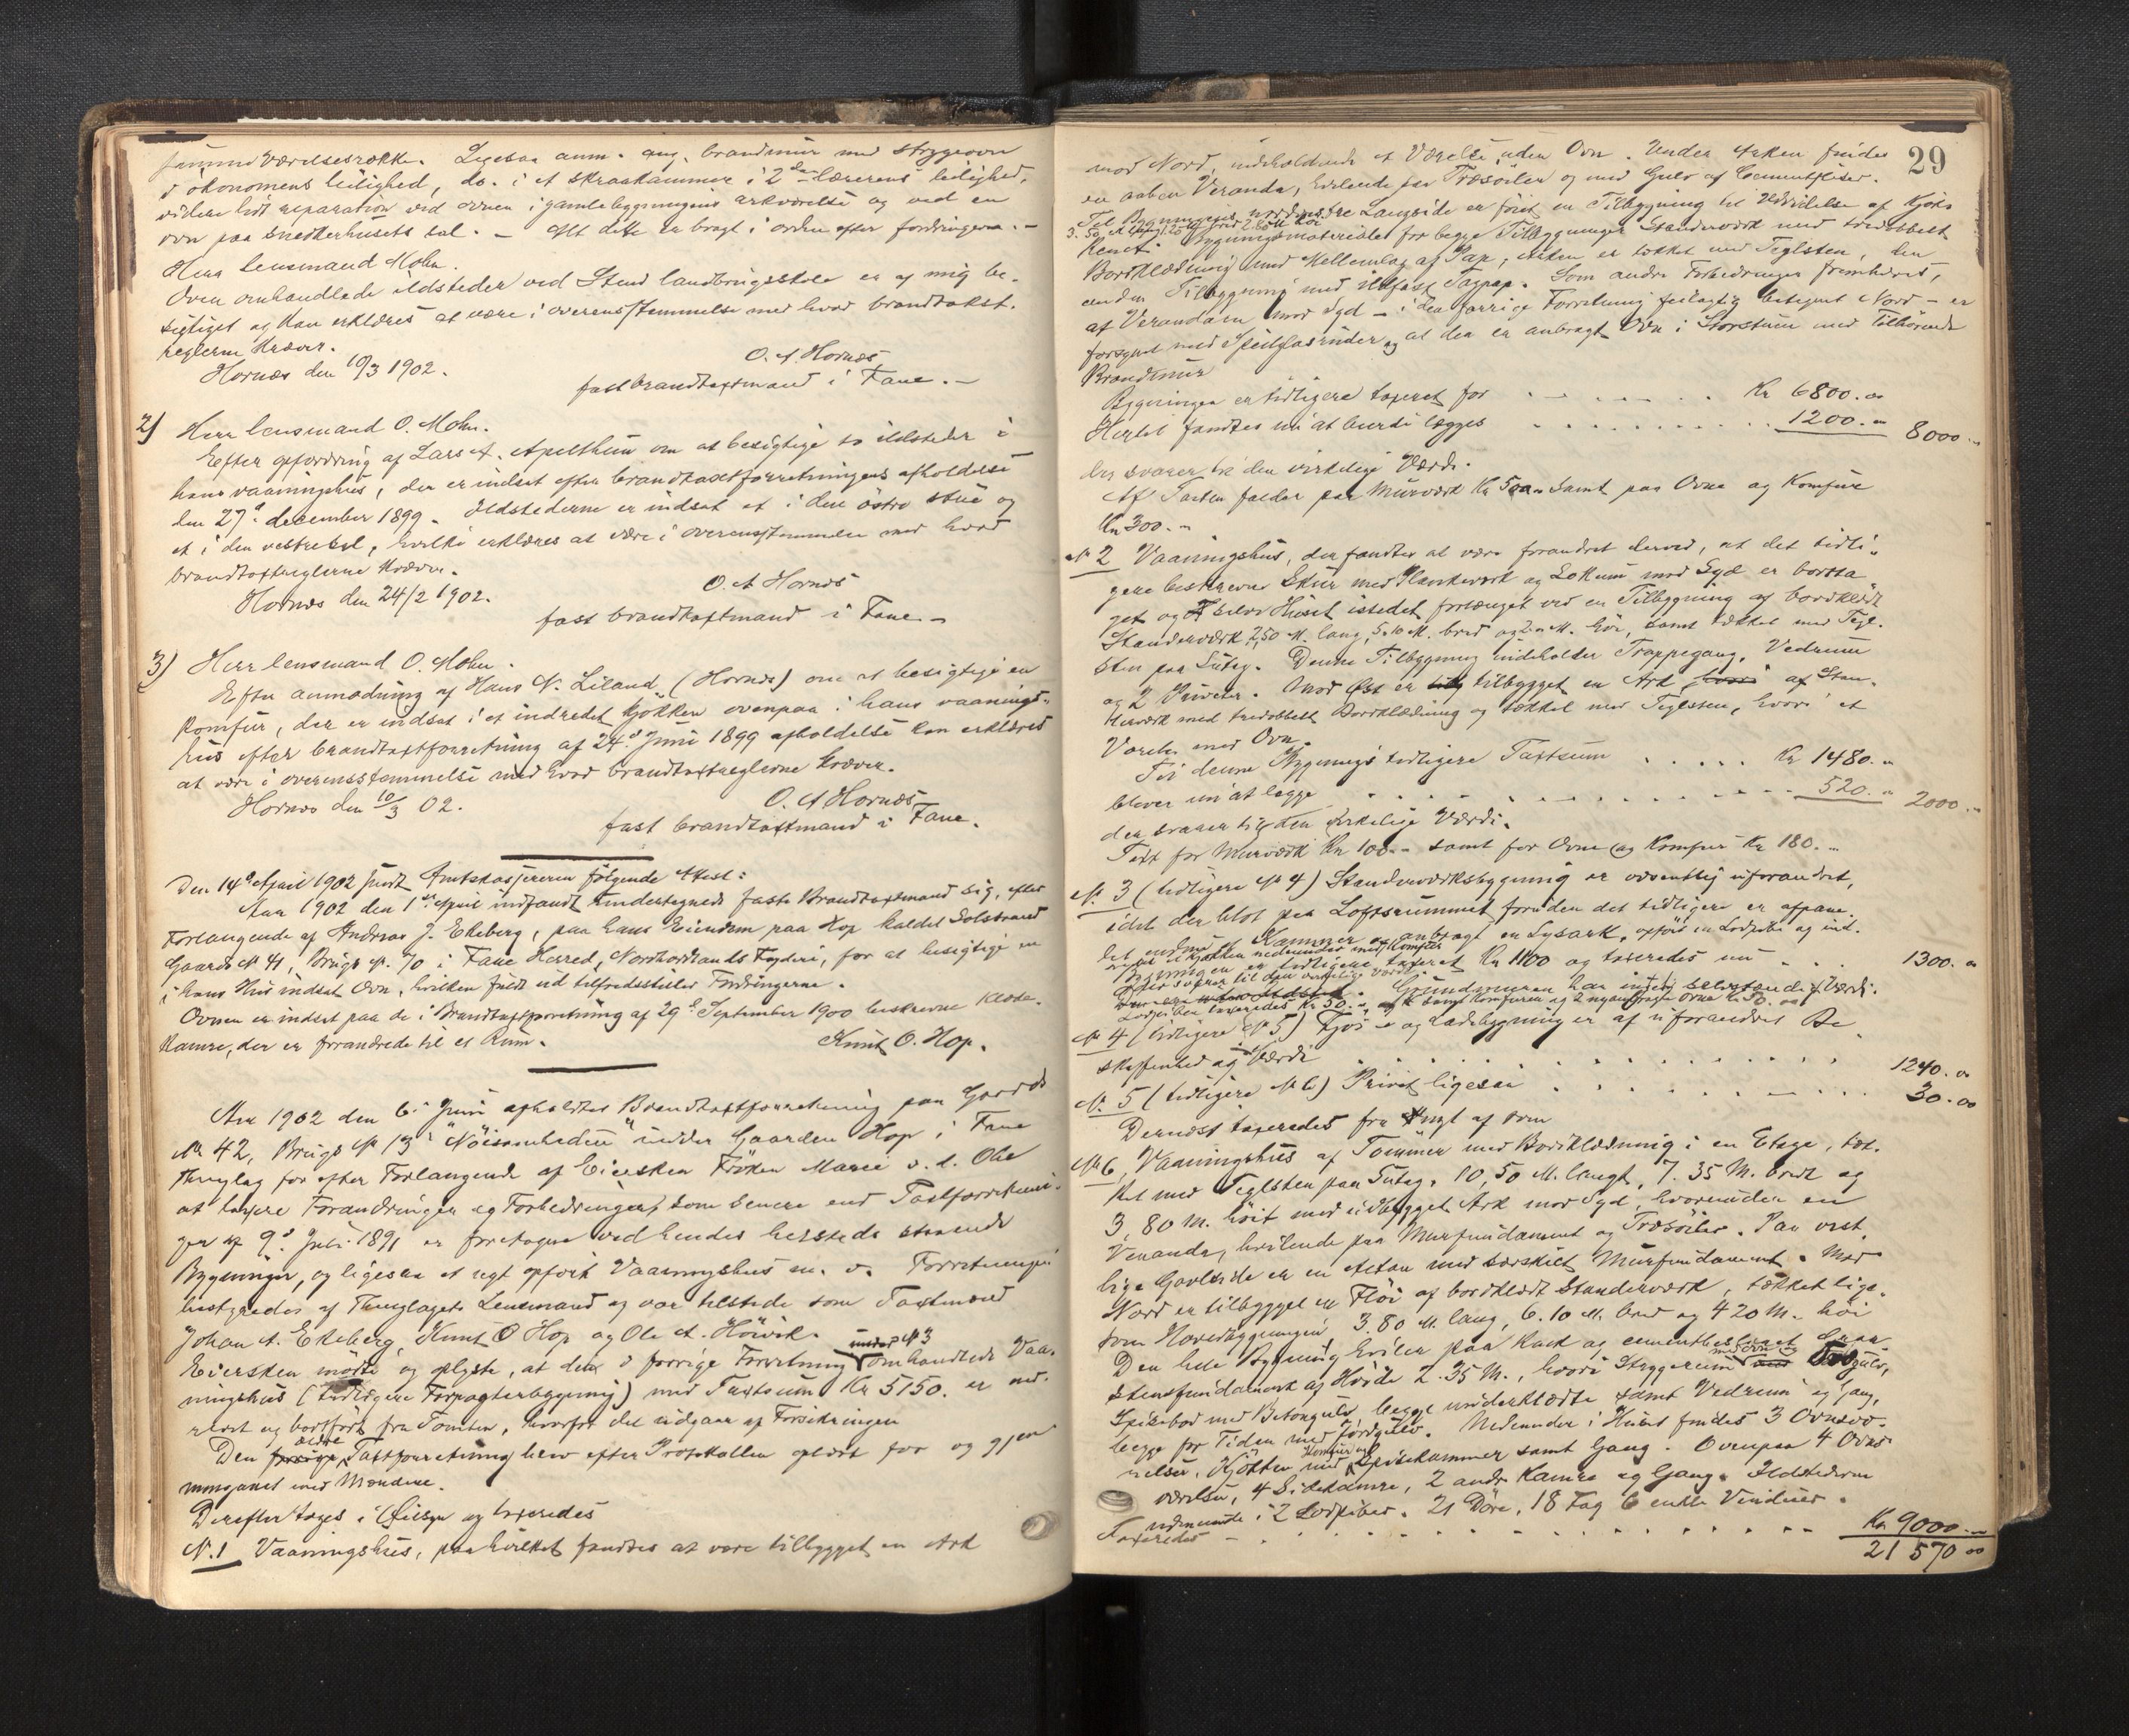 Værelsesrække. Ligesaa anm. ang. brandmur med strygeovn
i økonomens leilighed, do. i et skraakammer i 2den lærerens leilighed,
videre lidt reparation ved ovnen i gamlebygningens arkværelse og ved en
ovn paa snedkerhusets sal. – Alt dette er bragt i orden efter fordringerne. –
Herr lensmand Mohn.
Oven omhandlede ildsteder ved Stend landbrugsskole er af mig be-
sigtiget og kan erklæres at være i overensstemmelse med hvad brandtakst-
reglerne kræver.
Hornæs den 10/3 1902.
O. A. Hornæs
fast brandtaxtmand i Fane. –
2) Herr lensmand O. Mohn.
Efter opfordring af Lars A. Apelthun om at besigtige to ildsteder i
hans vaaningshus, der er indsat efter brandtaxtforretningens afholdelse
den 27d december 1899. Ildstederne er indsat et i den østre stue og
et i den vestre , hvilke erklæres at være i overensstemmelse med hvad
brandtaxtreglerne kræver.
Hornæs den 24/2 1902.
O. A Hornæs
fast brandtaxtmand i Fane –
3) Herr lensmand O. Mohn.
Efter anmodning af Hans N. Liland (Hornæs) om at besigtige en
komfur, der er indsat i et indredet kjøkken ovenpaa i hans vaanings-
hus efter brandtaxtforretning af 24d Juni 1899 afholdelse kan erklæres
at være i overensstemmelse med hvad brandtaxtreglerne kræver.
Hornæs den 10/3 02.
O. A Hornæs
fast brandtaxtmand i Fane.
Den 14d April 1902 sendt Amtskasjereren følgende Attest:
Aar 1902 den 1ste April indfandt undertegnede faste Brandtaxtmand sig, efter
Forlangende af Andreas J. Ekeberg, paa hans Eiendom paa Hop kaldet Solstrand
Gaards No 41, Brugs No. 70 i Fane Herred, Nordhordlands Fogderi, for at besigtige en
i hans Hus indsat Ovn, hvilken fuldt ud tilfredsstiller Fordringerne.
Ovnen er indsat paa de i Brandtaxtforretning af 29d September 1900 beskrevne Klæde-
kamre, der er forandrede til et Rum.
Knut O. Hop.
Aar 1902 den 6te Juni afholdtes Brandtaxtforretning paa Gaards
No 42, Brugs No 13 "Nöisomheden" under Gaarden Hop i Fane
Thinglag for efter Forlangende af Eiersken Frøken Marie v. d. Ohe
at taxere Forandringer og Forbedringer, som senere end Taxtforretnin-
gen af 9d Juli 1891 er foretagne ved hendes hersteds staaende
Bygninger, og ligesaa et nyt opført Vaaningshus m. v. Forretningen
bestyredes af Thinglagets Lensmand og var tilstede som Taxtmænd
Johan A. Ekeberg, Knut O Hop og Ole A. Høivik.
Eiersken mødte og oplyste, at det i forrige Forretning under No 3 omhandlede Vaa-
ningshus (tidligere Forpagterbygning) med Taxtsum Kr 5150. er ned-
revet og bortført fra Tomten, hvorfor det udgaar af Forsikringen
Den forrige ældre Taxtforretning blev efter Protokollen oplæst for og gjen-
nemgaaet med Mændene.
Derefter toges i Øiesyn og taxeredes
N. 1 Vaaningshus, paa hvilket fandtes at være tilbygget en Ark
29
mod Nord, indeholdende et Værelse uden Ovn. Under Arken findes
en aaben Veranda, hvilende paa Træsøiler og med Gulv af Cementfliser.
Til Bygningens nordøstre Langside er føiet en Tilbygning til Udvidelse af Kjøk-
kenet. Bygningsmaterialet for begge Tilbygninger Standerværk med tredobbelt
Bordklædning med Mellemlag af Pap, Arken er tækket med Teglsten, den
anden Tilbygning med ildfast Tagpap. Som andre Forbedringer fremhæves,
at Verandaen mod Syd – i den forrige Forretning feilagtig betegnet Nord – er
forsynet med Speilglasruder og at der er anbragt Ovn i Storstuen med Tilhørende
Brandmur
Bygningen er tidligere taxeret for Kr 6800.00
Hertil fandtes nu at burde lægges 1200.„ 8000.„
der svarer til den virkelige Værdi.
Af Taxten falder paa Murværk Kr 500.„ samt paa Ovne og Komfur
Kr 300.„
No 2 Vaaningshus, der fandtes at være forandret derved, at det tidli-
gere beskrevne Skur med Plankeværk og Lokum mod Syd er bortta-
get og selve Huset istedet forlænget ved en Tilbygning af bordklædt
Standerværk 2,50 M. lang, 5.10 M. bred og M. høi, samt tækket med Tegl-
sten paa Sutag. Denne Tilbygning indeholder Trappegang, Vedrum
og 2 Priveter. Mod Øst er tilbygget en Ark af Stan-
derværk med tredobbelt Bordklædning og tækket med Teglsten, hvori et
Værelse med Ovn.
Til denne Bygnings tidligere Taxtsum Kr 1480.„
bliver nu at lægge 520.„ 2000.„
der svarer til den virkelige Værdi.
Taxt for Murværk Kr 100.„ samt for Ovne og Komfur Kr 180.„
No. 3 (tidligere No 4) Standerværksbygning er væsentlig uforandret,
idet der blot paa Loftsrummet foruden det tidligere er afpane-
let endnu et Kammer og anbragt en Sysark, opført en Lodpibe og ind-
redet et Kjøkken nedenunder med Komfur
Bygningen er tidligere taxeret Kr 1100 og taxeredes nu 1300.„
der svarer til den virkelige Værdi. Grundmuren har ingen selvstændig Værdi.
Lodpiben taxeredes Kr 50.„ samt Komfuren og 2 nyanbragte Ovne Kr 50.„
No 4 (tidligere No 5) Fjøs- og Ladebygning er af uforandret Be-
skaffenhed og Værdi 1240.„
No. 5 (tidligere No 6) Privet ligesaa 30.00
Dernæst taxeredes fra nyt af som
No 6, Vaaningshus af Tømmer med Bordklædning i en Etage, tæk-
ket med Teglsten paa Sutag. 10,50 M. langt, 7.35 M. bredt og
3,80 M. høit med udbygget Ark mod Syd, hvorunder en
Veranda, hvilende paa Murfundament og Træsøiler. Paa vest-
lige Gavlside er en Altan med særskilt Murfundament. Mod
Nord er tilbygget en Fløi af bordklædt Standerværk, tækket lige-
som Hovedbygningen 3.80 M. lang, 6.10 M. bred og 4 20 M. høi
Den hele Bygning hviler paa Hack og cementbeslaaet Graa-
stensfundament af Høide 2.35 M., hvori Strygerum med Ovn og Trægulv,
Spisebod med Betongulv, begge underklædte samt Vedrum og Gang,
begge for Tiden med Jordgulv. Nedenunder i Huset findes 3 Ovnsvæ-
relser, Kjøkken med Komfur og Spisekammer samt Gang. Ovenpaa 4 Ovns-
værelser, 4 Sidekamre, 2 andre Kamre og Gang. Ildstederne
udmunde i 2 Lodpiber. 21 Døre, 18 Fag 6 enkle Vinduer.
Taxeredes Kr 9000.„
21 570 00